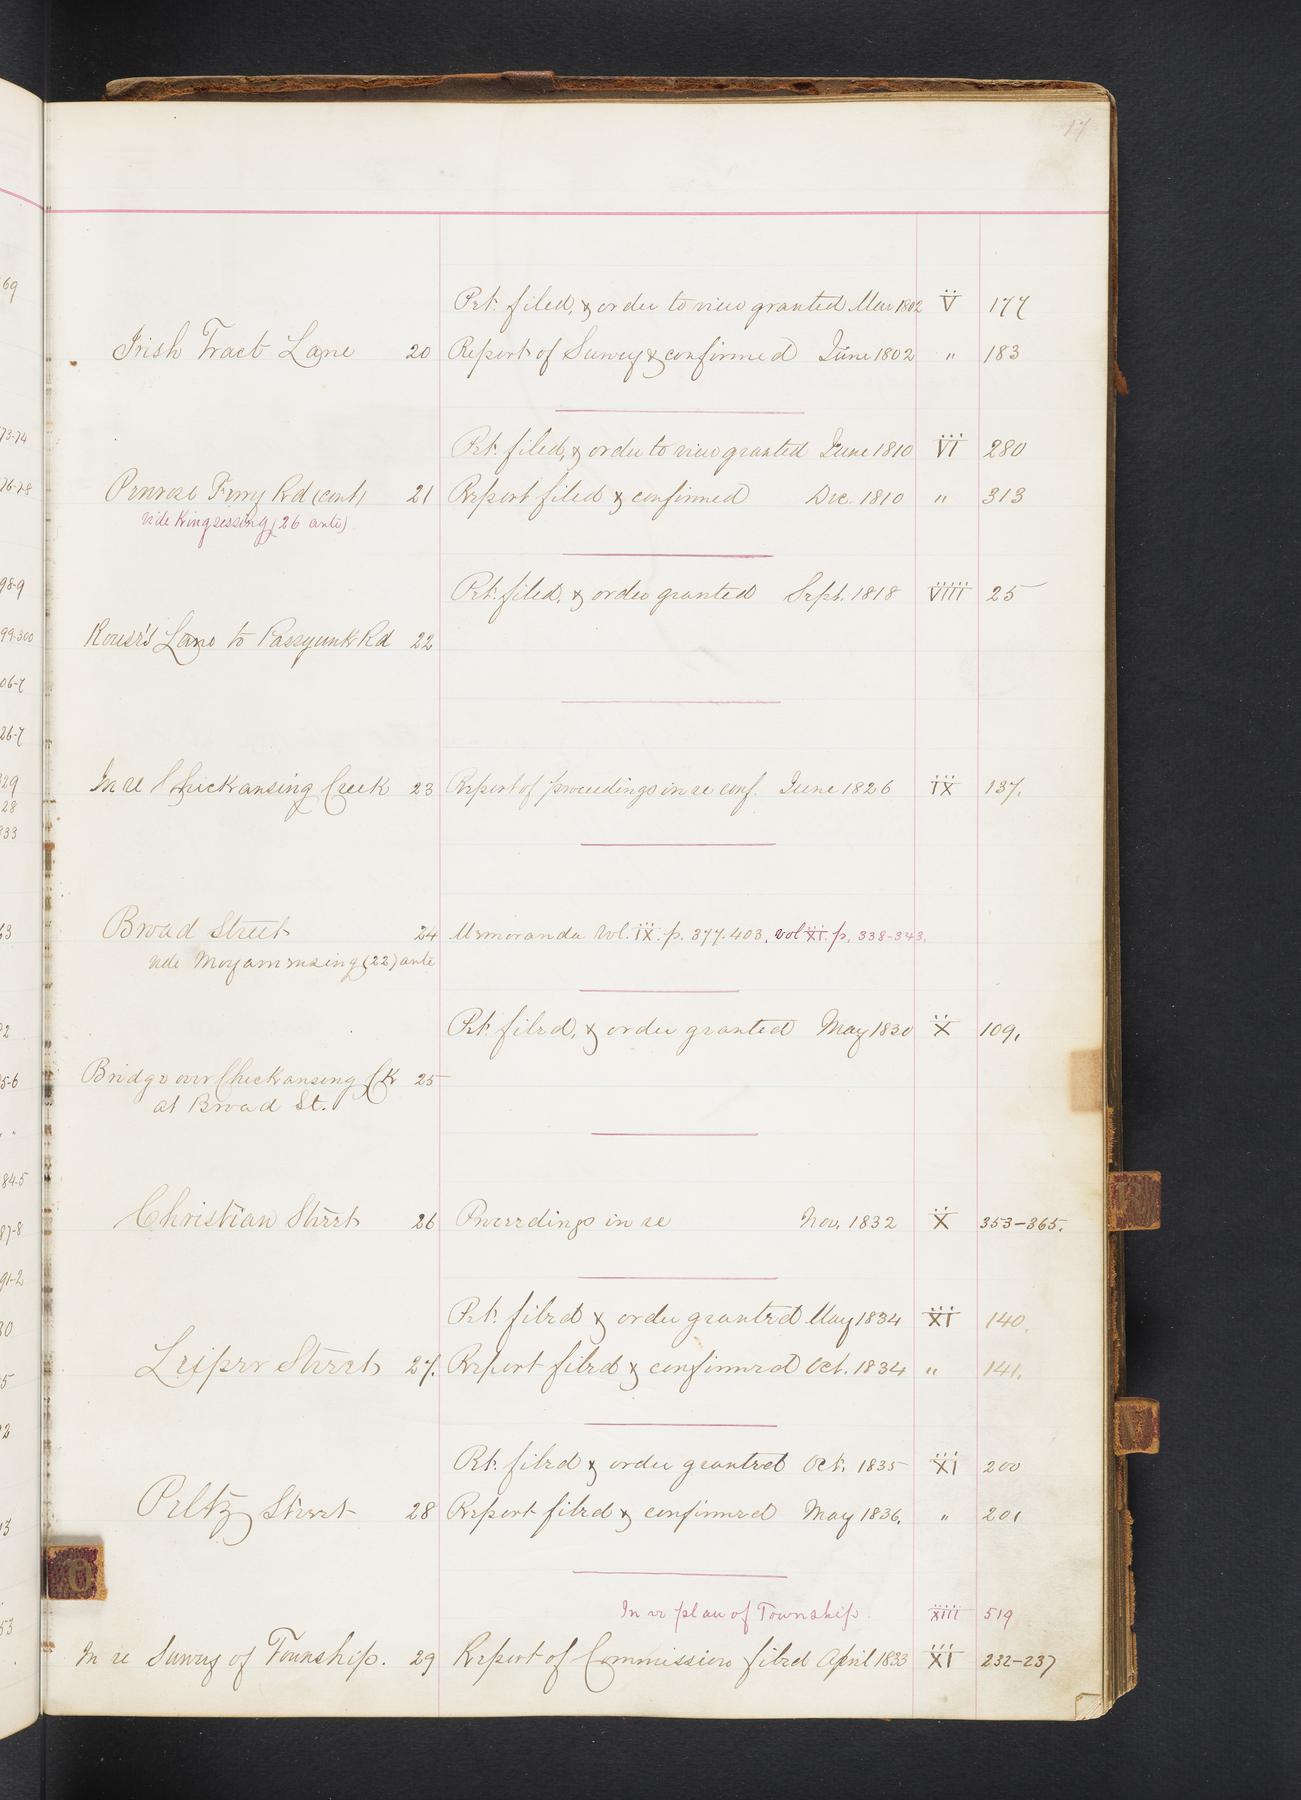 17
Pet. filed, & order to view granted Mar 1802 V 177
Irish Tract Lane 20 Report of Survey & confirmed June 1802 " 183
Pet. filed, & order to view granted June 1810 VI 280
Penrose Ferry Rd (cont) 21 Report filed & confirmed Dec. 1810 " 313
vide Kingsessing (26 ante)
Pet. filed, & order granted Sept. 1818 VIIII 25
Rouse's Lane to Passyunk Rd 22
In re Chickansing Creek 23 Report of proceedings in re conf. June 1826 IX 137.
Broad Street 24 Memoranda Vol. IX. p. 377.403, vol XI. p. 338-343.
vide Moyamensing (22) ante
Pet. filed, & order granted May 1830 X 109,
Bridge over Chickansing Ck 25
at Broad St.
Christian Street 26 Proceedings in re Nov. 1832 X 353-365.
Pet. filed & order granted May 1834 XI 140.
Leiper Street 27. Report filed & confirmed Oct. 1834 " 141.
Pet. filed & order granted Oct. 1835 XI 200
Peltz Street 28 Report filed & confirmed May 1836. " 201
In re plan of Township. XIII 519
In re Survey of Township. 29 Report of Commission filed April 1833 XI 232-237